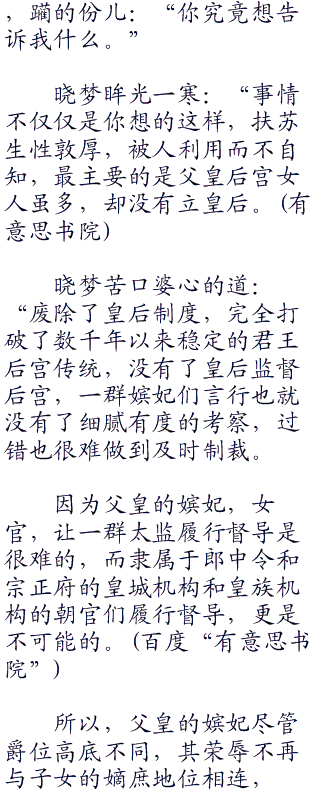 ，躏的份儿：“你究竟想告
诉我什么。”
晓梦眸光一寒：“事情
不仅仅是你想的这样，扶苏
生性敦厚，被人利用而不自
知，最主要的是父皇后宫女
人虽多，却没有立皇后。(有
意思书院)
晓梦苦口婆心的道：
“废除了皇后制度，完全打
破了数千年以来稳定的君王
后宫传统，没有了皇后监督
后宫，一群嫔妃们言行也就
没有了细腻有度的考察，过
错也很难做到及时制裁。
因为父皇的嫔妃，女
官，让一群太监履行督导是
很难的，而隶属于郎中令和
宗正府的皇城机构和皇族机
构的朝官们履行督导，更是
不可能的。(百度“有意思书
院”)
所以，父皇的嫔妃尽管
爵位高底不同，其荣辱不再
与子女的嫡庶地位相连，